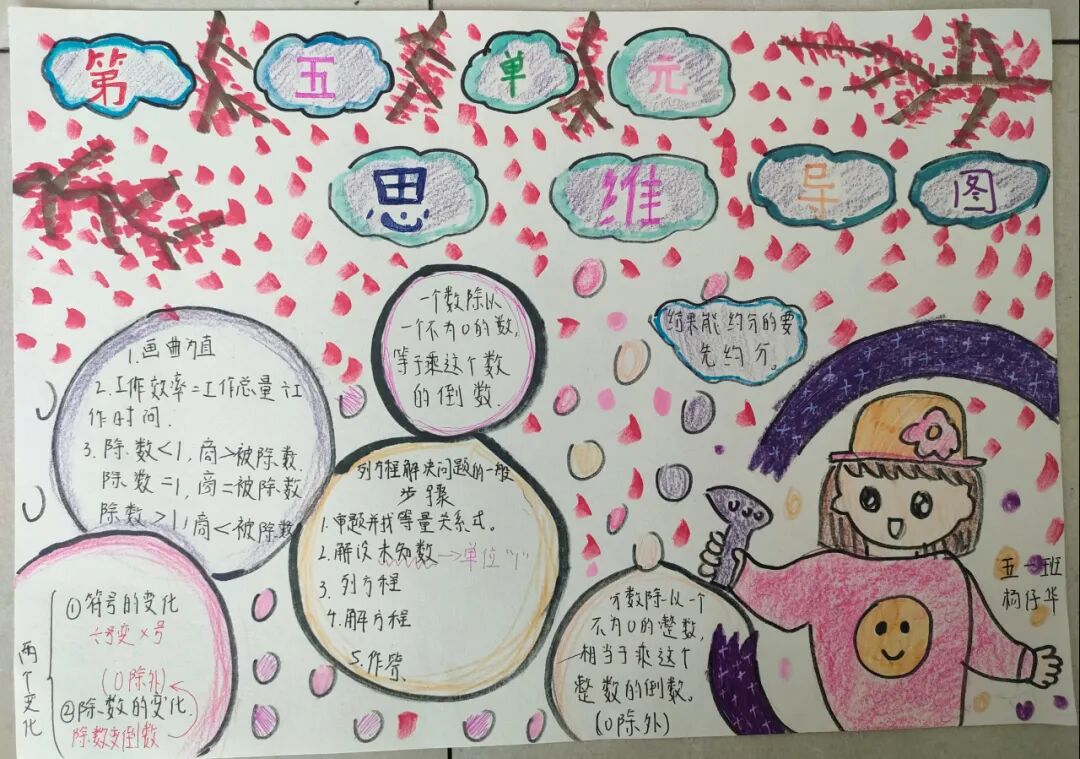 第五单元
思维导图
1.画曲为值
2.工作效率=工作总量÷工
作时间.
3.除数<1,商>被除数.
除数=1,商=被除数
除数>1,商<被除数
一个数除以
一个不为0的数,
等于乘这个数
的倒数.
结果能约分的要
先约分。
列方程解决问题的一般
步骤
1.审题并找等量关系式。
2.解设未知数→单位"1"
3.列方程
4.解方程
5.作答.
两个变化
①符号的变化
÷号变×号
(0除外)
②除数的变化.
除数变倒数
分数除以一个
不为0的整数,
相当于乘这个
整数的倒数。
(0除外)
五一班
杨仔华